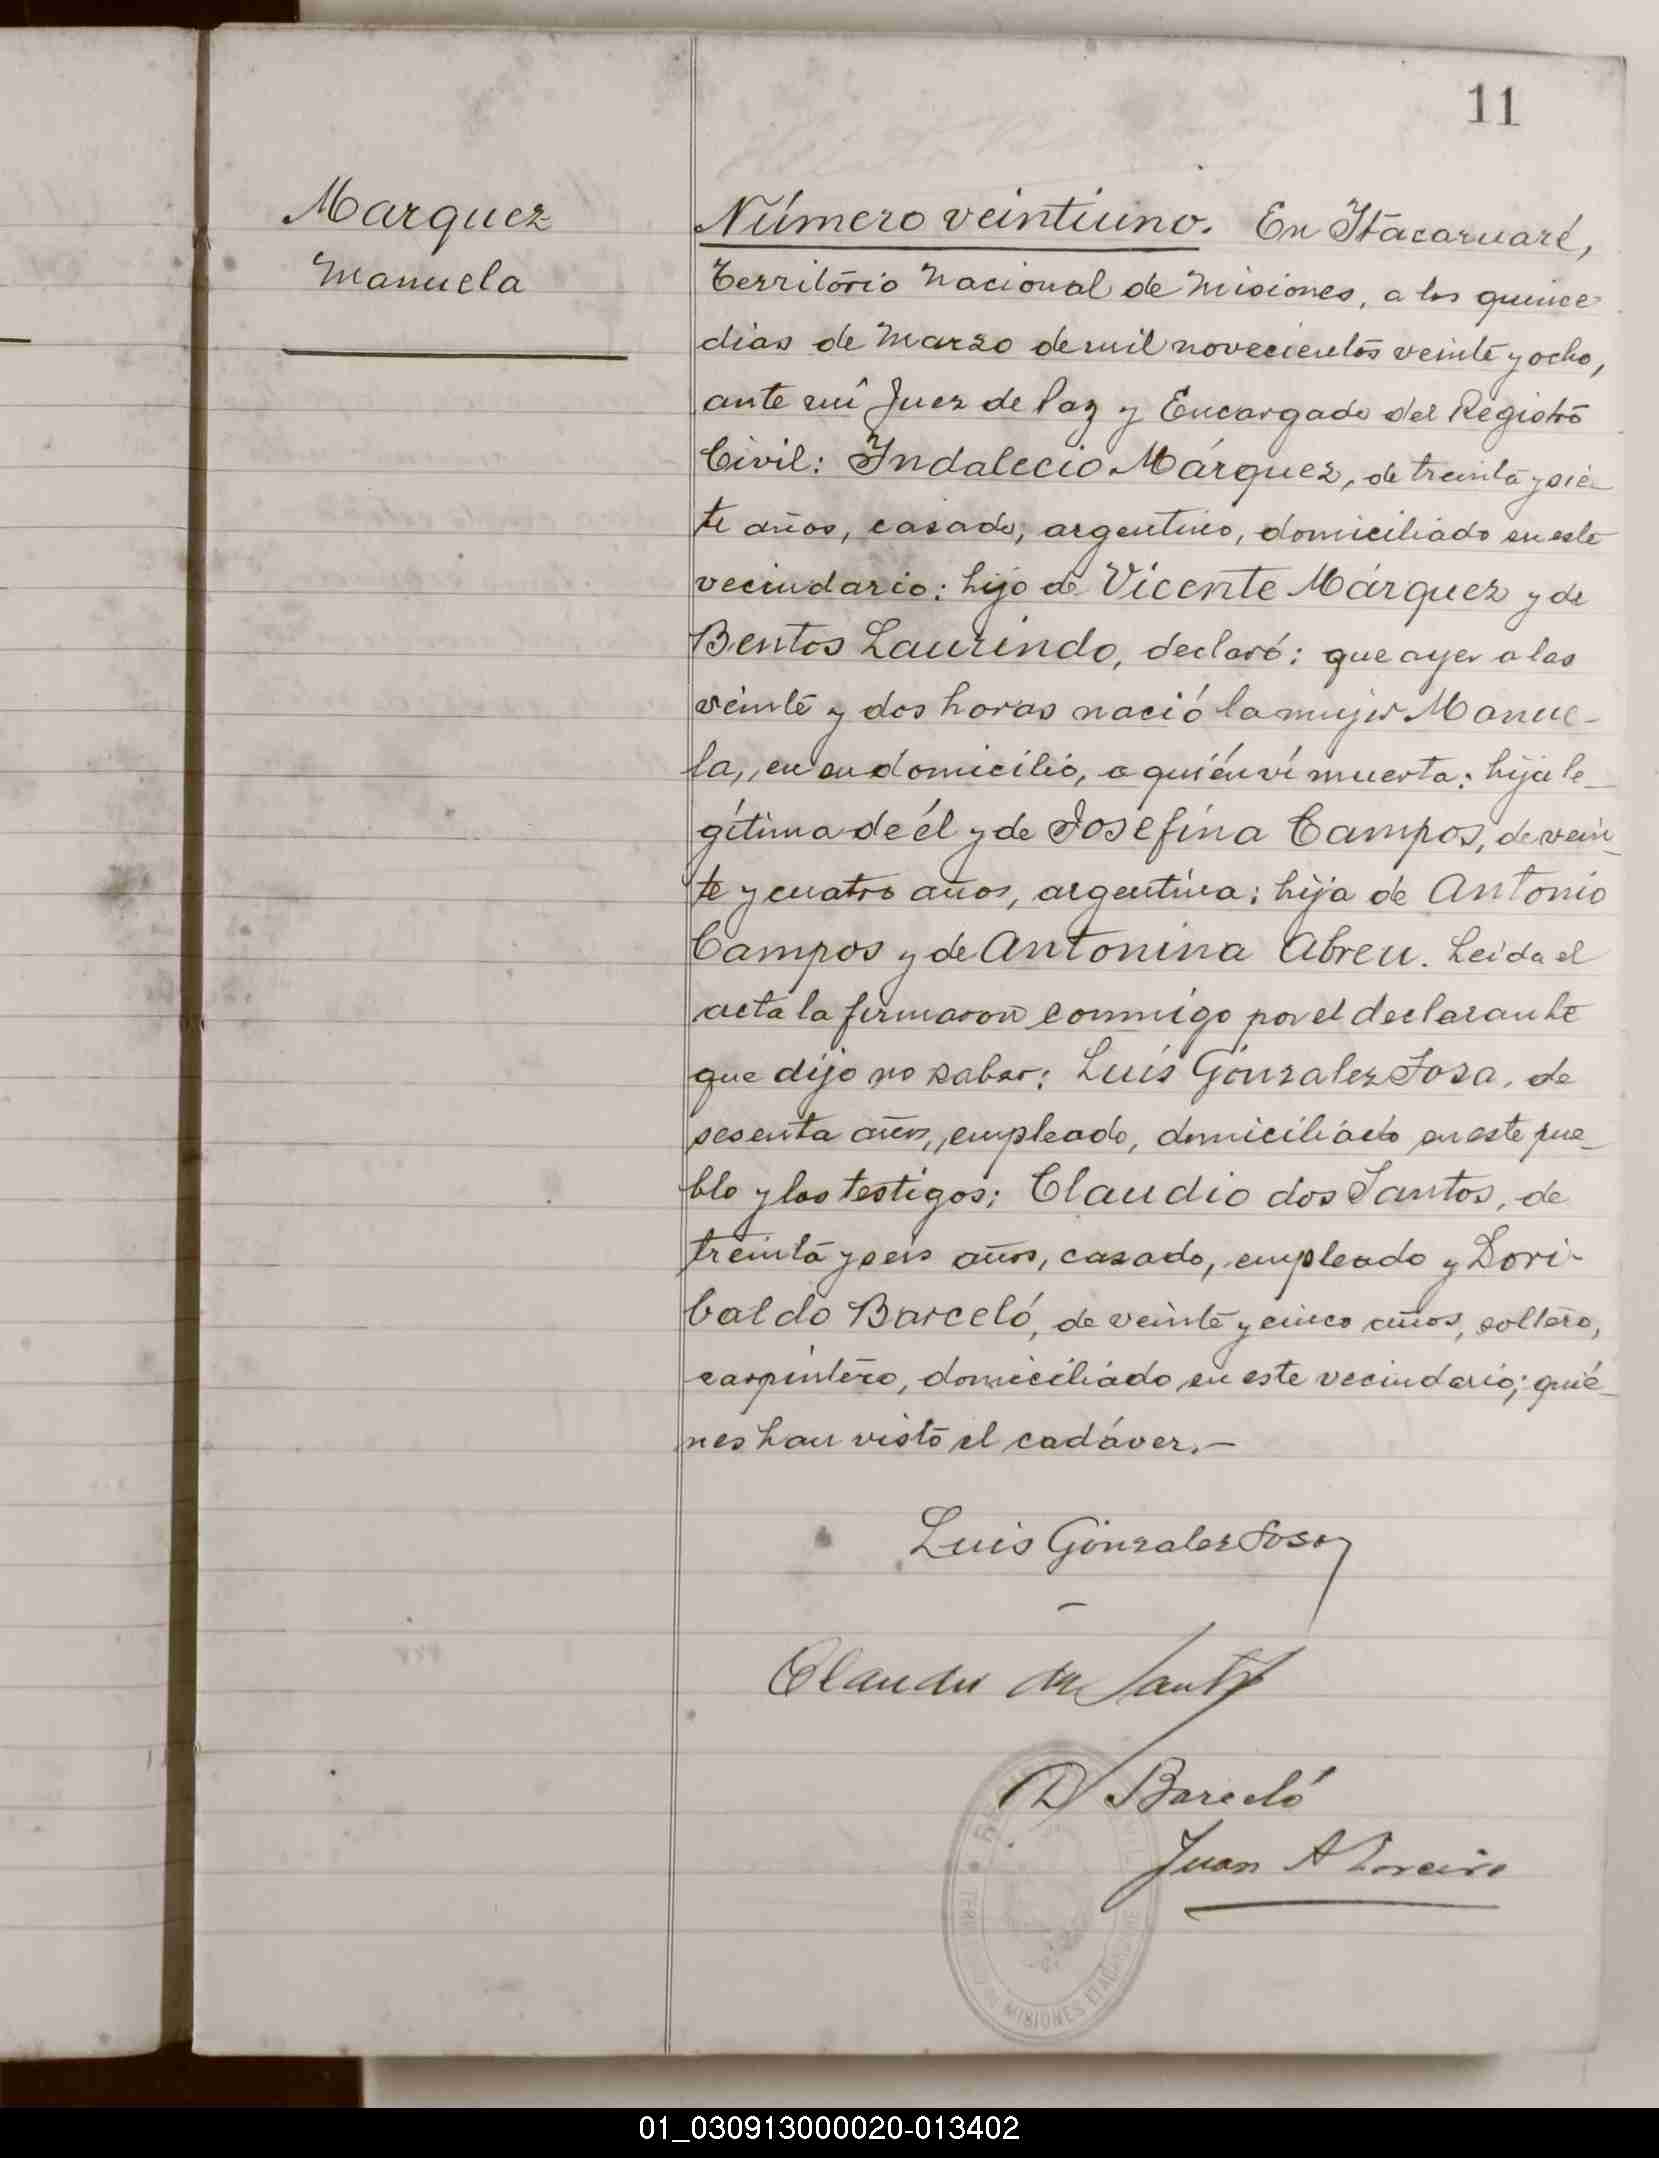 11
Marquez
Manuela
Número veintiuno. En Itacaruaré,
Territorio Nacional de Misiones, a los quince
dias de Marzo de mil novecientos veinte y ocho,
ante mi Juez de Paz y Encargado del Registro
Civil: Indalecio Márquez, de treinta y sie-
te años, casado, argentino, domiciliado en este
vecindario: hijo de Vicente Márquez y de
Bentos Laurindo, declaró: que ayer a las
veinte y dos horas nació la mujer Manue-
la, en su domicilio, a quién ví muerta: hija le-
gítima de él y de Josefina Campos, de vein-
te y cuatro años, argentina: hija de Antonio
Campos y de Antonina Abreu. Leida el
acta la firmaron conmigo por el declarante
que dijo no saber: Luis Gonzalez Sosa, de
sesenta años, empleado, domiciliado en este pue-
blo y los testigos: Claudio dos Santos, de
treinta y seis años, casado, empleado y Dori-
baldo Barceló, de veinte y cinco años, soltero,
carpintero, domiciliado en este vecindario; quié-
nes han visto el cadáver.-
Luis Gonzalez Sosa
Claudio dos Santos
D Barceló
Juan A
TERRITORIO DE MISIONES ITACARUARE
01_030913000020-013402